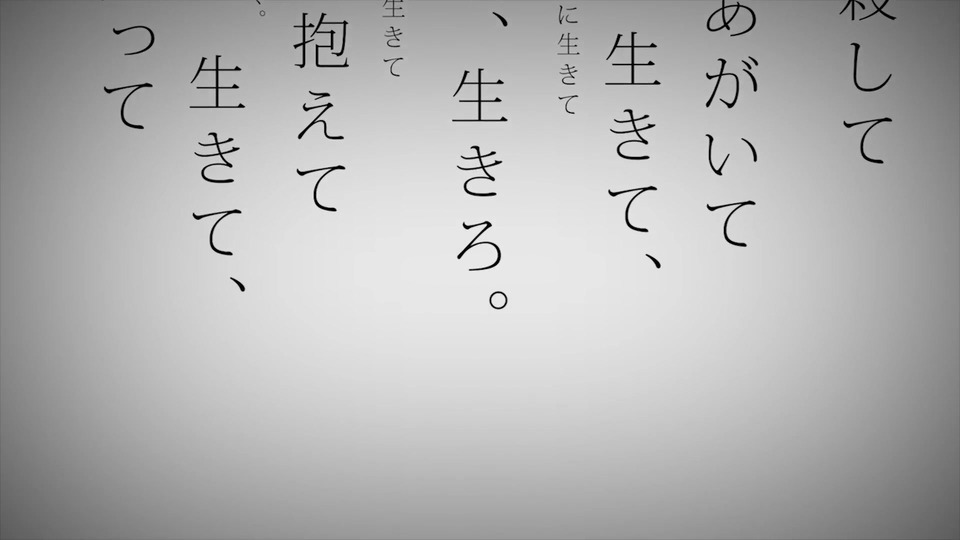 殺して
あがいて
生きて、
に生きて
、生きろ。
生きて
抱えて
生きて、
って